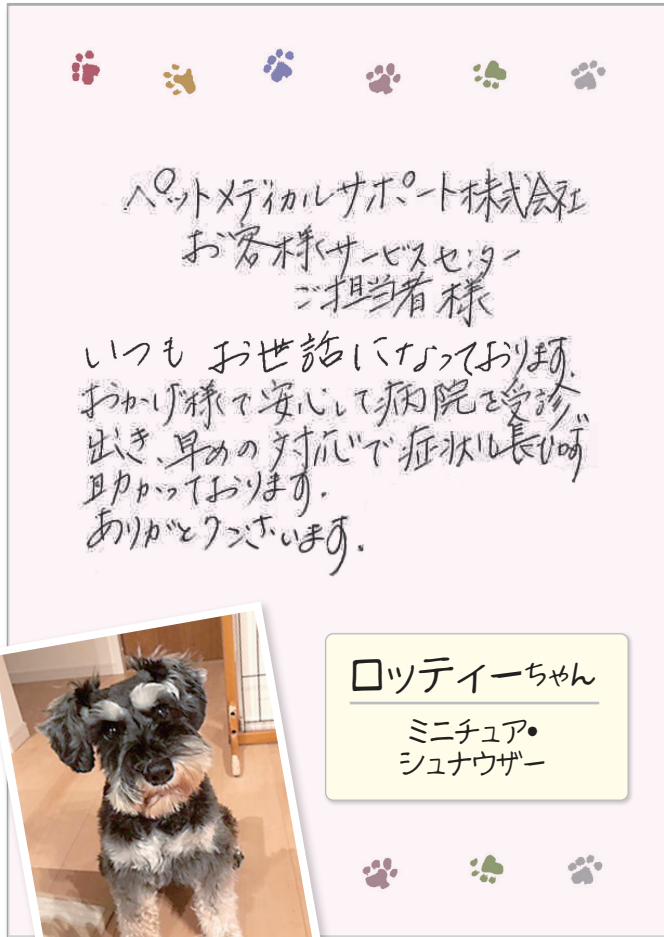 ペットメディカルサポート株式会社
お客様サービスセンター
ご担当者様
いつも お世話になっております。
おかげ様で安心して病院を受診
出き、早めの対応で症状も長びかず
助かっております。
ありがとうございます。
ロッティーちゃん
ミニチュア・
シュナウザー